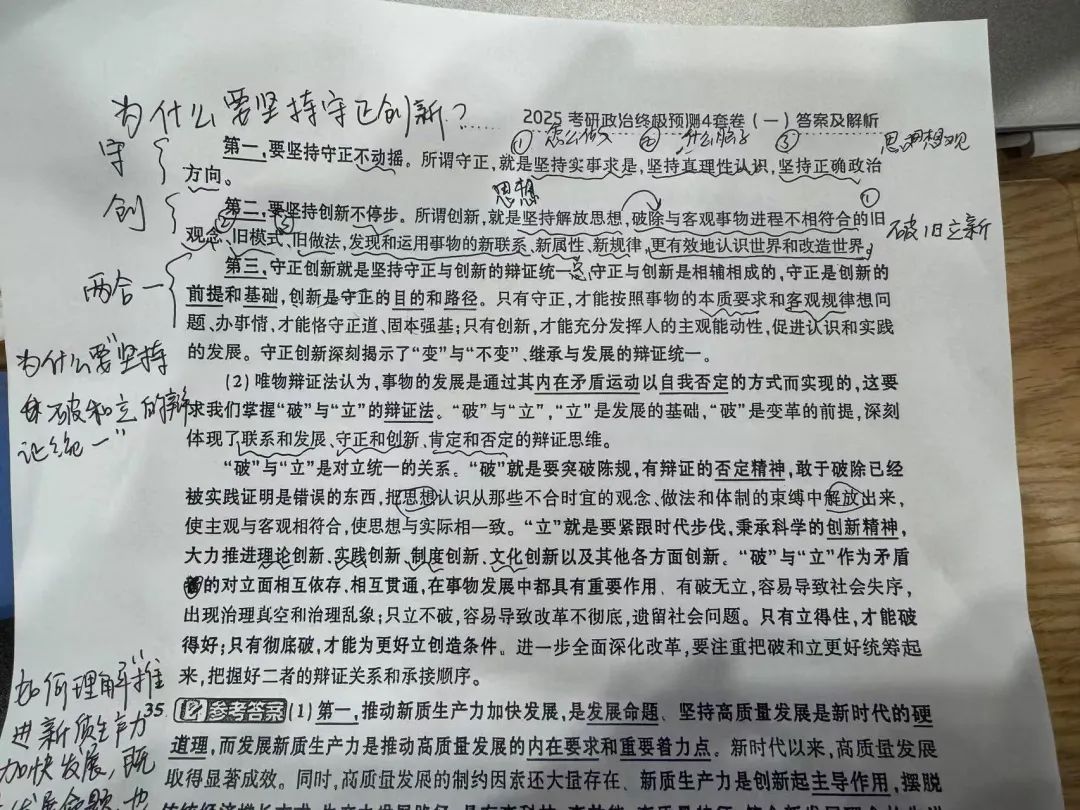 为什么要坚持守正创新?
2025考研政治终极预测4套卷(一)答案及解析
① 怎么做 ② 什么 ③
守
第一,要坚持守正不动摇。所谓守正,就是坚持实事求是,坚持真理性认识,坚持正确政治
方向。
思想
①
创
第二,要坚持创新不停步。所谓创新,就是坚持解放思想,破除与客观事物进程不相符合的旧
② ③
破旧立新
观念、旧模式、旧做法,发现和运用事物的新联系、新属性、新规律,更有效地认识世界和改造世界。
两合一
第三,守正创新就是坚持守正与创新的辩证统一。守正与创新是相辅相成的,守正是创新的
前提和基础,创新是守正的目的和路径。只有守正,才能按照事物的本质要求和客观规律想问
题、办事情,才能恪守正道、固本强基;只有创新,才能充分发挥人的主观能动性,促进认识和实践
的发展。守正创新深刻揭示了“变”与“不变”、继承与发展的辩证统一。
为什么要“坚持
破和立的辩
证统一”
(2)唯物辩证法认为,事物的发展是通过其内在矛盾运动以自我否定的方式而实现的,这要
求我们掌握“破”与“立”的辩证法。“破”与“立”,“立”是发展的基础,“破”是变革的前提,深刻
体现了联系和发展、守正和创新、肯定和否定的辩证思维。
“破”与“立”是对立统一的关系。“破”就是要突破陈规,有辩证的否定精神,敢于破除已经
被实践证明是错误的东西,把思想认识从那些不合时宜的观念、做法和体制的束缚中解放出来,
使主观与客观相符合,使思想与实际相一致。“立”就是要紧跟时代步伐,秉承科学的创新精神,
大力推进理论创新、实践创新、制度创新、文化创新以及其他各方面创新。“破”与“立”作为矛盾
的对立面相互依存、相互贯通,在事物发展中都具有重要作用、有破无立,容易导致社会失序,
出现治理真空和治理乱象;只立不破,容易导致改革不彻底,遗留社会问题。只有立得住,才能破
得好;只有彻底破,才能为更好立创造条件。进一步全面深化改革,要注重把破和立更好统筹起
来,把握好二者的辩证关系和承接顺序。
如何理解“推
进新质生产力
加快发展,既
35 参考答案 (1)第一,推动新质生产力加快发展,是发展命题、坚持高质量发展是新时代的硬
道理,而发展新质生产力是推动高质量发展的内在要求和重要着力点。新时代以来,高质量发展
取得显著成效。同时,高质量发展的制约因素还大量存在、新质生产力是创新起主导作用,摆脱